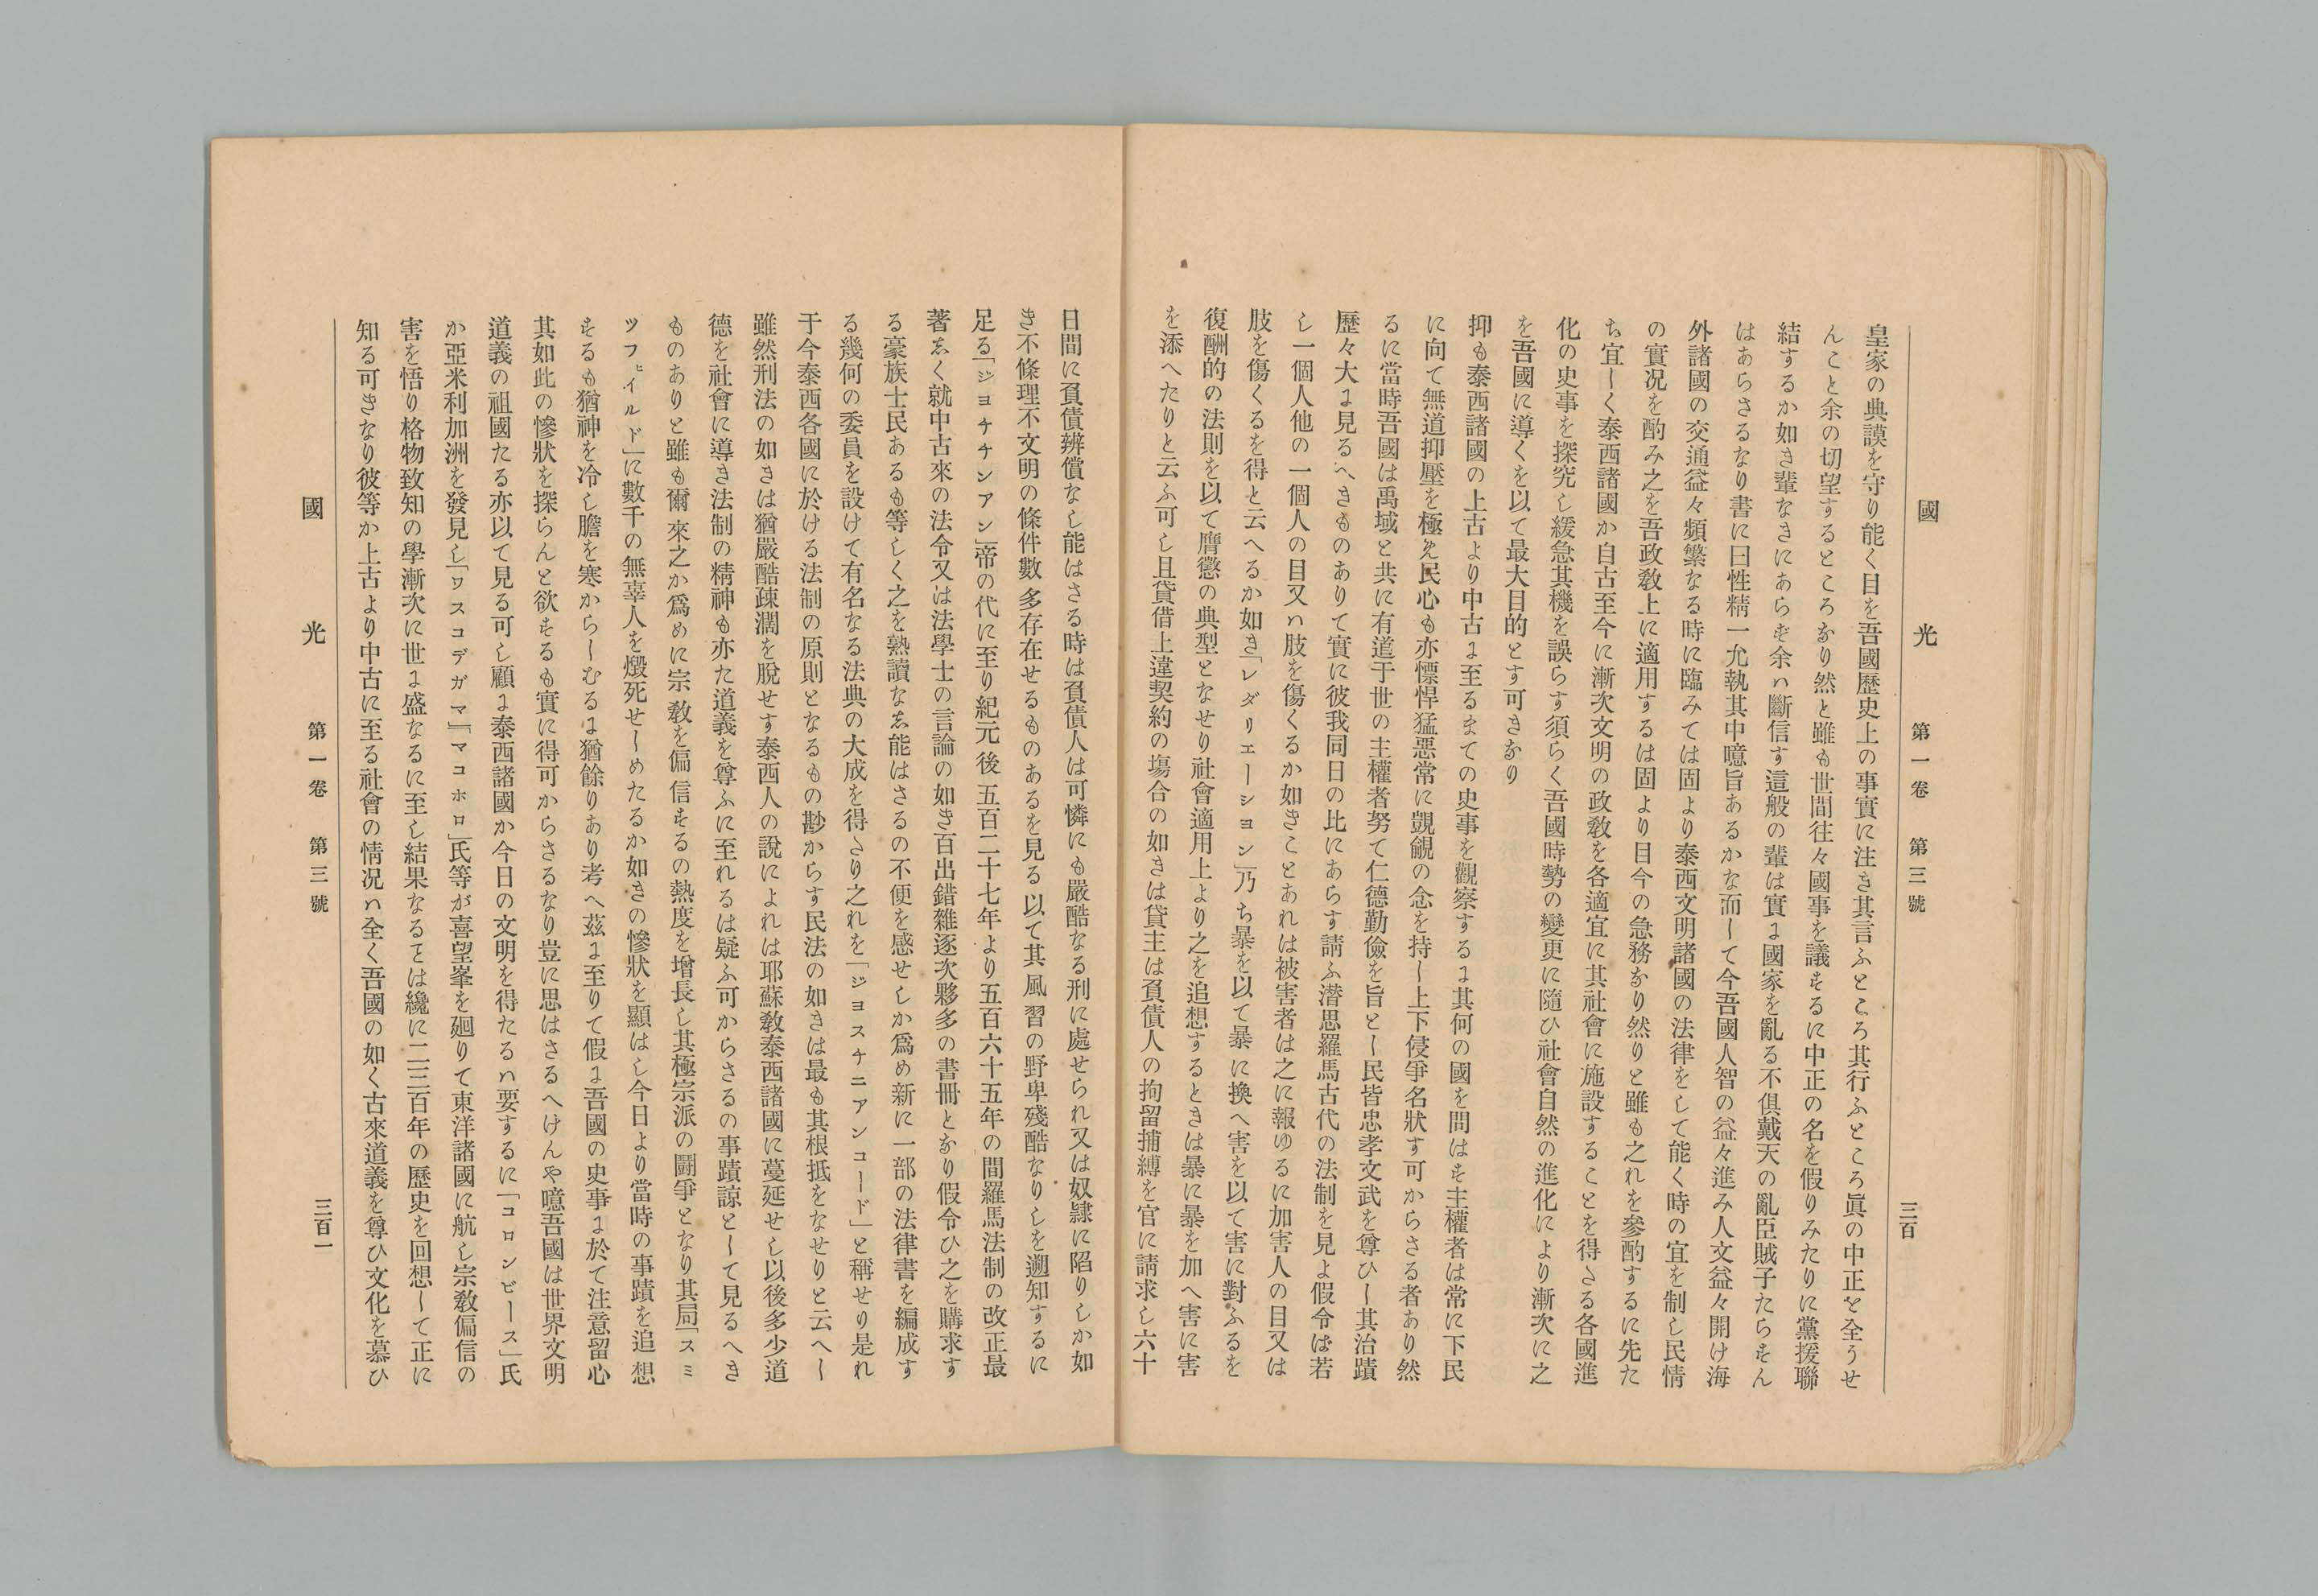 國光 第一卷 第三號 三百
皇家の典謨を守り能く目を吾國歷史上の事實に注き其言ふところ其行ふところ眞の中正を全うせ
んこと余の切望するところなり然と雖も世間往々國事を議するに中正の名を假りみたりに黨援聯
結するか如き輩なきにあらず余ハ斷信す這般の輩は實に國家を亂る不俱戴天の亂臣賊子たらずん
はあらさるなり書に曰性精一允執其中噫旨あるかな而して今吾國人智の益々進み人文益々開け海
外諸國の交通益々頻繁なる時に臨みては固より泰西文明諸國の法律をして能く時の宜を制し民情
の實況を酌み之を吾政敎上に適用するは固より目今の急務なり然りと雖も之れを參酌するに先た
ち宜しく泰西諸國か自古至今に漸次文明の政敎を各適宜に其社會に施設することを得さる各國進
化の史事を探究し緩急其機を誤らす須らく吾國時勢の變更に隨ひ社會自然の進化により漸次に之
を吾國に導くを以て最大目的とす可きなり
抑も泰西諸國の上古より中古に至るまての史事を觀察するに其何の國を問はす主權者は常に下民
に向て無道抑壓を極え民心も亦慓悍猛惡常に覬覦の念を持し上下侵爭名狀す可からさる者あり然
るに當時吾國は禹域と共に有道于世の主權者努て仁德勤儉を旨とし民皆忠孝文武を尊ひし其治蹟
歷々大に見るへきものありて實に彼我同日の比にあらす請ふ潜思羅馬古代の法制を見よ假令ば若
し一個人他の一個人の目又ハ肢を傷くるか如きことあれは被害者は之に報ゆるに加害人の目又は
肢を傷くるを得と云へるか如き「レダリエーシヨン」乃ち暴を以て暴に換へ害を以て害に對ふるを
復酬的の法則を以て膺懲の典型となせり社會適用上より之を追想するときは暴に暴を加へ害に害
を添へたりと云ふ可し且貸借上違契約の塲合の如きは貸主は負債人の拘留捕縛を官に請求し六十
日間に負債辨償なし能はさる時は負債人は可憐にも嚴酷なる刑に處せられ又は奴隷に陷りしか如
き不條理不文明の條件數多存在せるものあるを見る以て其風習の野卑殘酷なりしを遡知するに
足る「ジヨチチンアン」帝の代に至り紀元後五百二十七年より五百六十五年の間羅馬法制の改正最
著ゑく就中古來の法令又は法學士の言論の如き百出錯雜逐次夥多の書冊となり假令ひ之を購求す
る豪族士民あるも等しく之を熟讀なゑ能はさるの不便を感せしか爲め新に一部の法律書を編成す
る幾何の委員を設けて有名なる法典の大成を得さり之れを「ジヨスチニアンコード」と稱せり是れ
于今泰西各國に於ける法制の原則となるもの尠からす民法の如きは最も其根抵をなせりと云へし
雖然刑法の如きは猶嚴酷疎濶を脫せす泰西人の說によれは耶蘇敎泰西諸國に蔓延せし以後多少道
德を社會に導き法制の精神も亦た道義を尊ふに至れるは疑ふ可からさるの事蹟諒として見るへき
ものありと雖も爾來之か爲めに宗敎を偏信するの熱度を增長し其極宗派の鬪爭となり其局「スミ
ツフヒイルド」に數千の無辜人を燬死せしめたるか如きの慘狀を顯はし今日より當時の事蹟を追想
するも猶神を冷し膽を寒からしむるに猶餘りあり考へ茲に至りて假に吾國の史事に於て注意留心
其如此の慘狀を探らんと欲するも實に得可からさるなり豈に思はさるへけんや噫吾國は世界文明
道義の祖國たる亦以て見る可し顧に泰西諸國か今日の文明を得たるハ要するに「コロンビース」氏
か亞米利加洲を發見し「ワスコデガマ」「マコホロ」氏等が喜望峯を廻りて東洋諸國に航し宗敎偏信の
害を悟り格物致知の學漸次に世に盛なるに至し結果なるとは纔に二三百年の歷史を回想して正に
知る可きなり彼等か上古より中古に至る社會の情況ハ全く吾國の如く古來道義を尊ひ文化を慕ひ
國光 第一卷 第三號 三百一